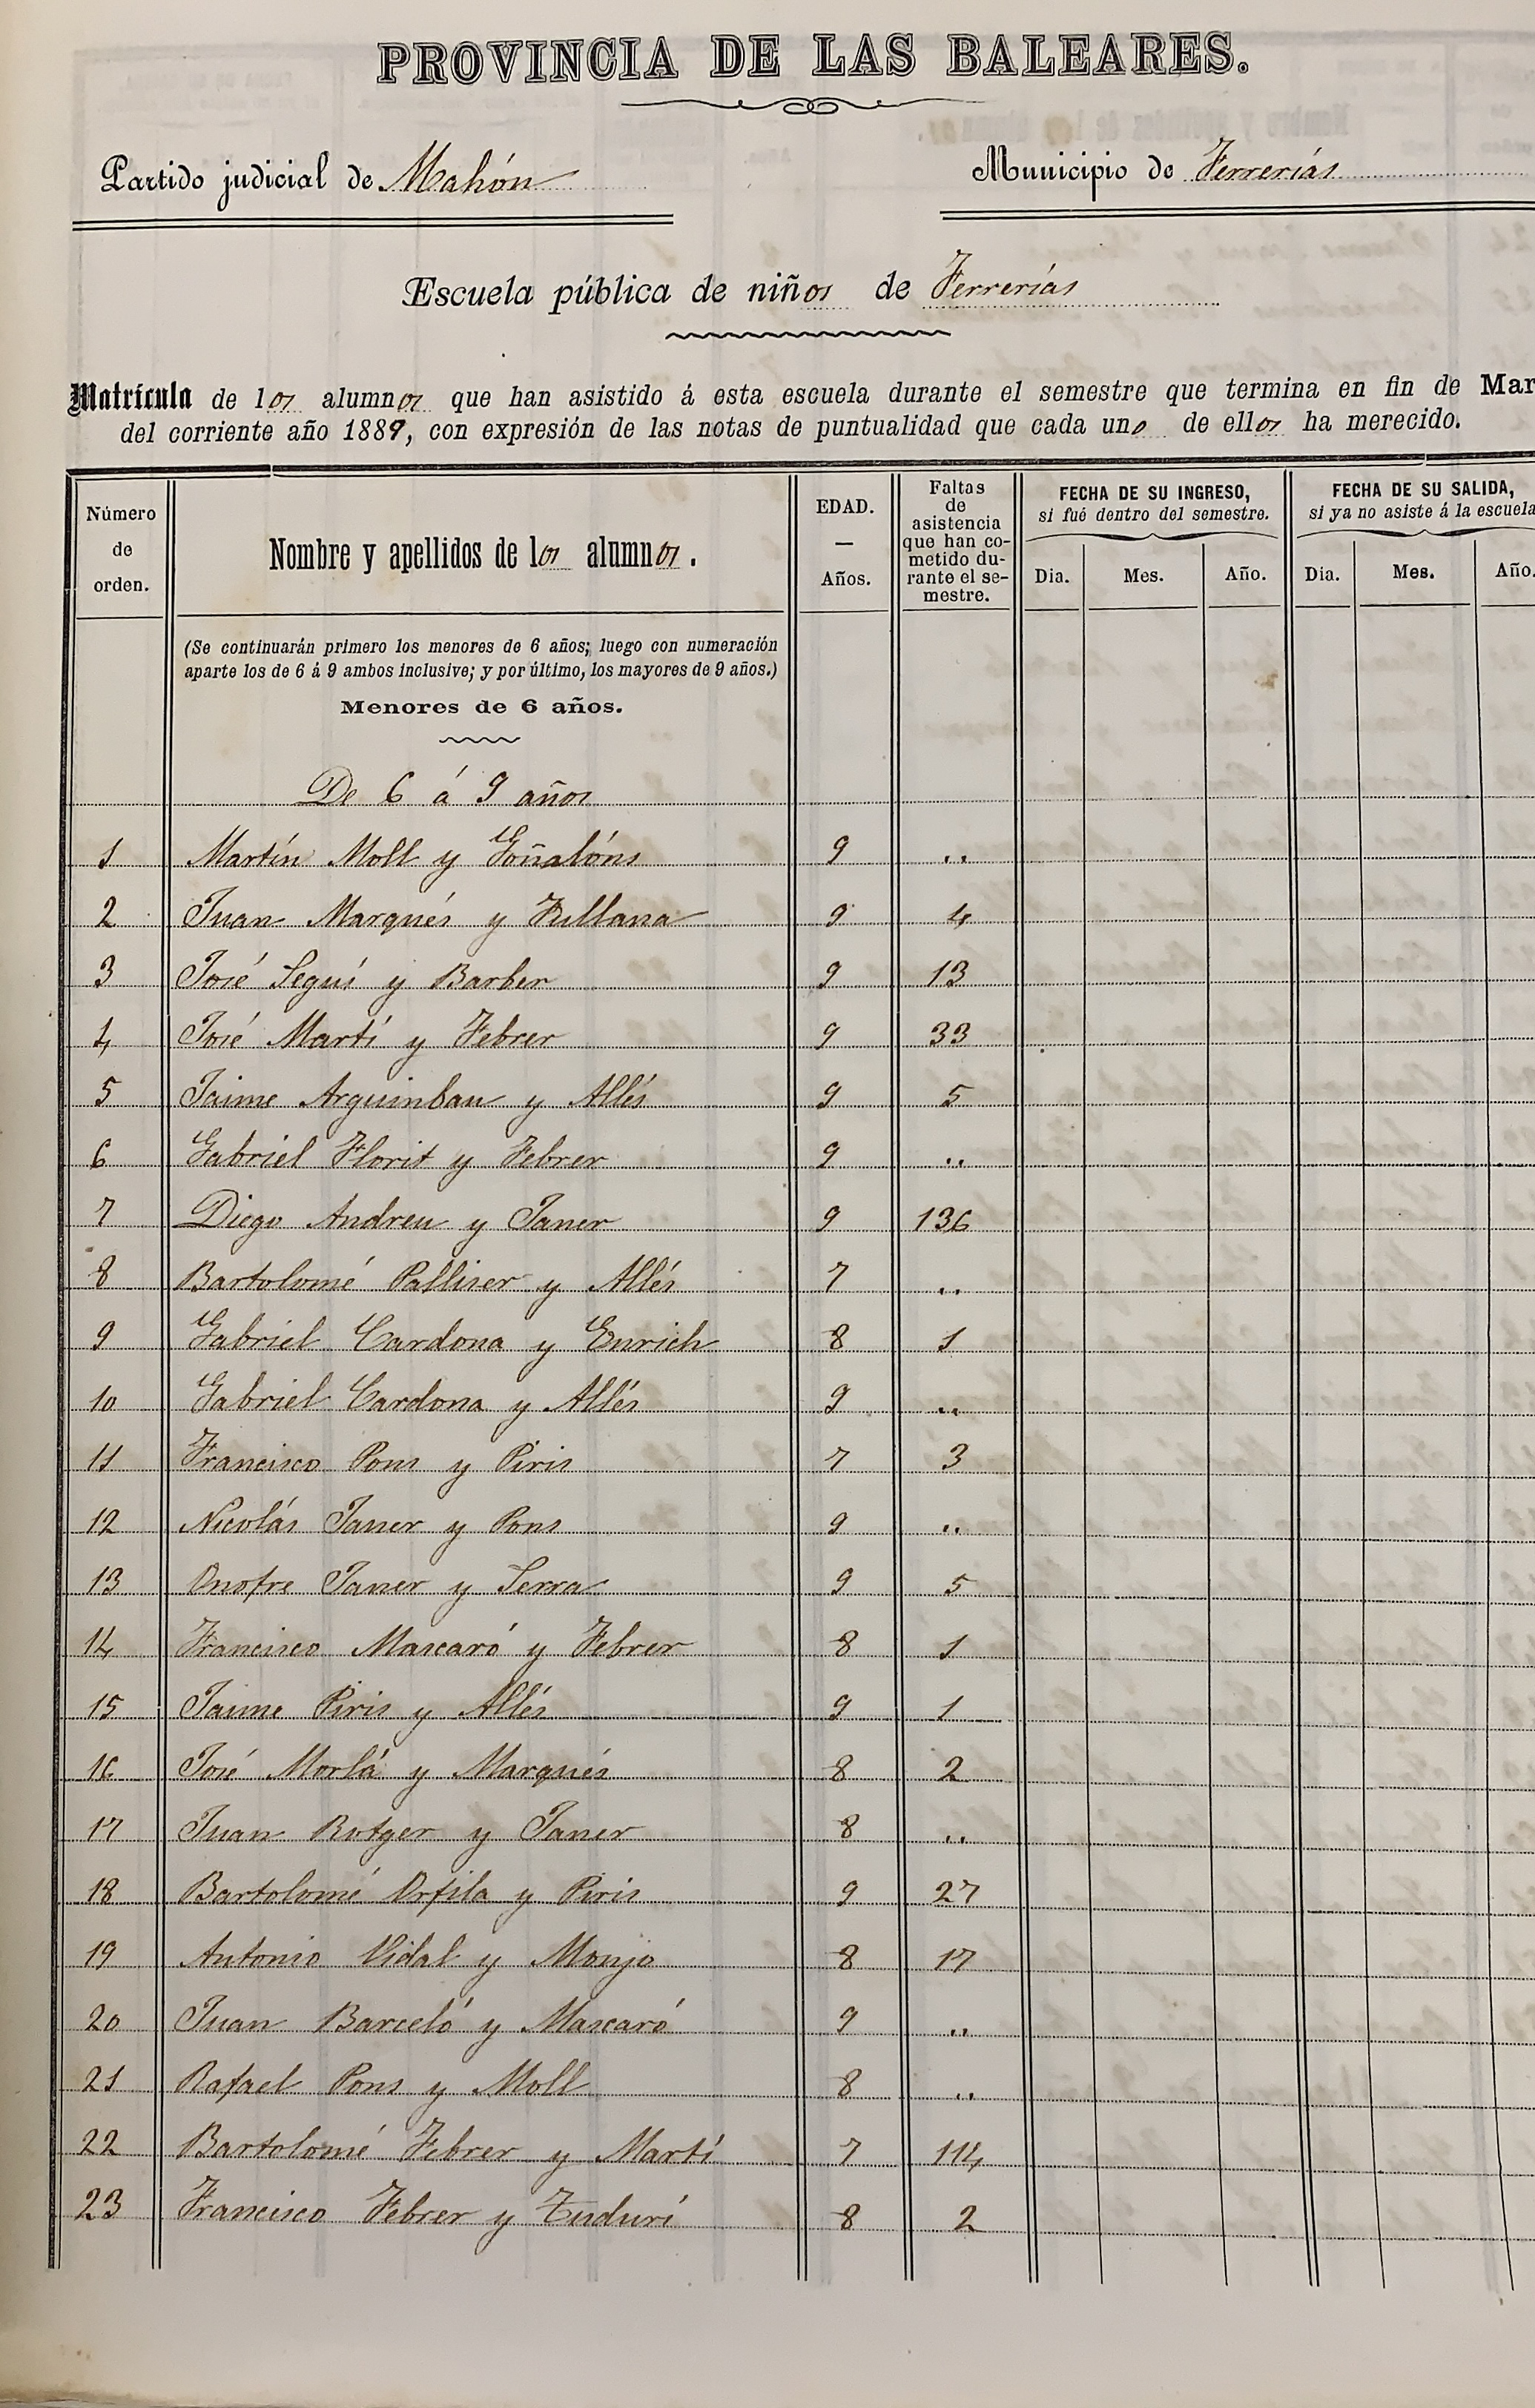 PROVINCIA DE LAS BALEARES.
Partido judicial de Mahón
Municipio de Ferrerías
Escuela pública de niños de Ferrerías
Matrícula de los alumnos que han asistido á esta escuela durante el semestre que termina en fin de Mar
del corriente año 1889, con expresión de las notas de puntualidad que cada uno de ellos ha merecido.
Número de orden.
Nombre y apellidos de los alumnos.
EDAD. — Años.
Faltas de asistencia que han cometido durante el semestre.
FECHA DE SU INGRESO, si fué dentro del semestre.
FECHA DE SU SALIDA, si ya no asiste á la escuela
Dia. Mes. Año. Dia. Mes. Año.
(Se continuarán primero los menores de 6 años; luego con numeración
aparte los de 6 á 9 ambos inclusive; y por último, los mayores de 9 años.)
Menores de 6 años.
De 6 á 9 años
1 Martín Moll y Goñalóns 9 ..
2 Juan Marqués y Fullana 9 4
3 José Seguí y Barber 9 13
4 José Martí y Febrer 9 33
5 Jaime Arguimbau y Allés 9 5
6 Gabriel Florit y Febrer 9 ..
7 Diego Andreu y Janer 9 136
8 Bartolomé Palliser y Allés 7 ..
9 Gabriel Cardona y Enrich 8 1
10 Gabriel Cardona y Allés 9 ..
11 Francisco Pons y Piris 7 3
12 Nicolás Janer y Pons 9 ..
13 Onofre Janer y Serra 9 5
14 Francisco Mascaró y Febrer 8 1
15 Jaime Piris y Allés 9 1
16 José Morlá y Marqués 8 2
17 Juan Rotger y Janer 8 ..
18 Bartolomé Orfila y Piris 9 27
19 Antonio Vidal y Monjo 8 17
20 Juan Barceló y Mascaró 9 ..
21 Rafael Pons y Moll 8 ..
22 Bartolomé Febrer y Martí 7 114
23 Francisco Febrer y Tudurí 8 2